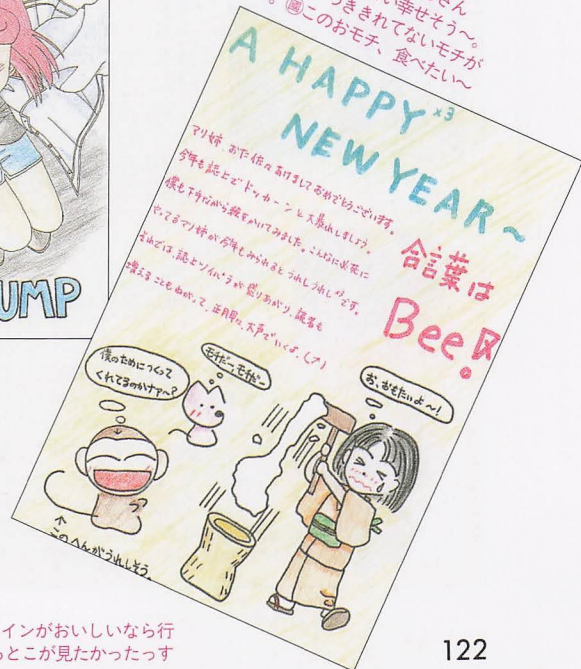 さん
い幸せそう〜。
つききれてないモチが
。国このおモチ、食べたい〜
A HAPPY×3
NEW YEAR〜
マリ姉、おた佐々あけましておめでとうございます。
今年も誌上でドッカーンと大暴れしましょう。
僕も下手ながら絵をかいてみました。こんなに必死に
やってるマリ姉が今年もみられるとうれしうれしです。
それでは、誌上ソイバラが盛りあがり、読者も
増えることもねがって、正月早々、大声でいくよ、(ノ)
合言葉は
Bee!
僕のためにつくって
くれてるのかナァ〜?
モチだー、モチだー
お、おもたいよ〜!
↑
このへんがうれしそう。
UMP
インがおいしいなら行
とこが見たかったっす
122